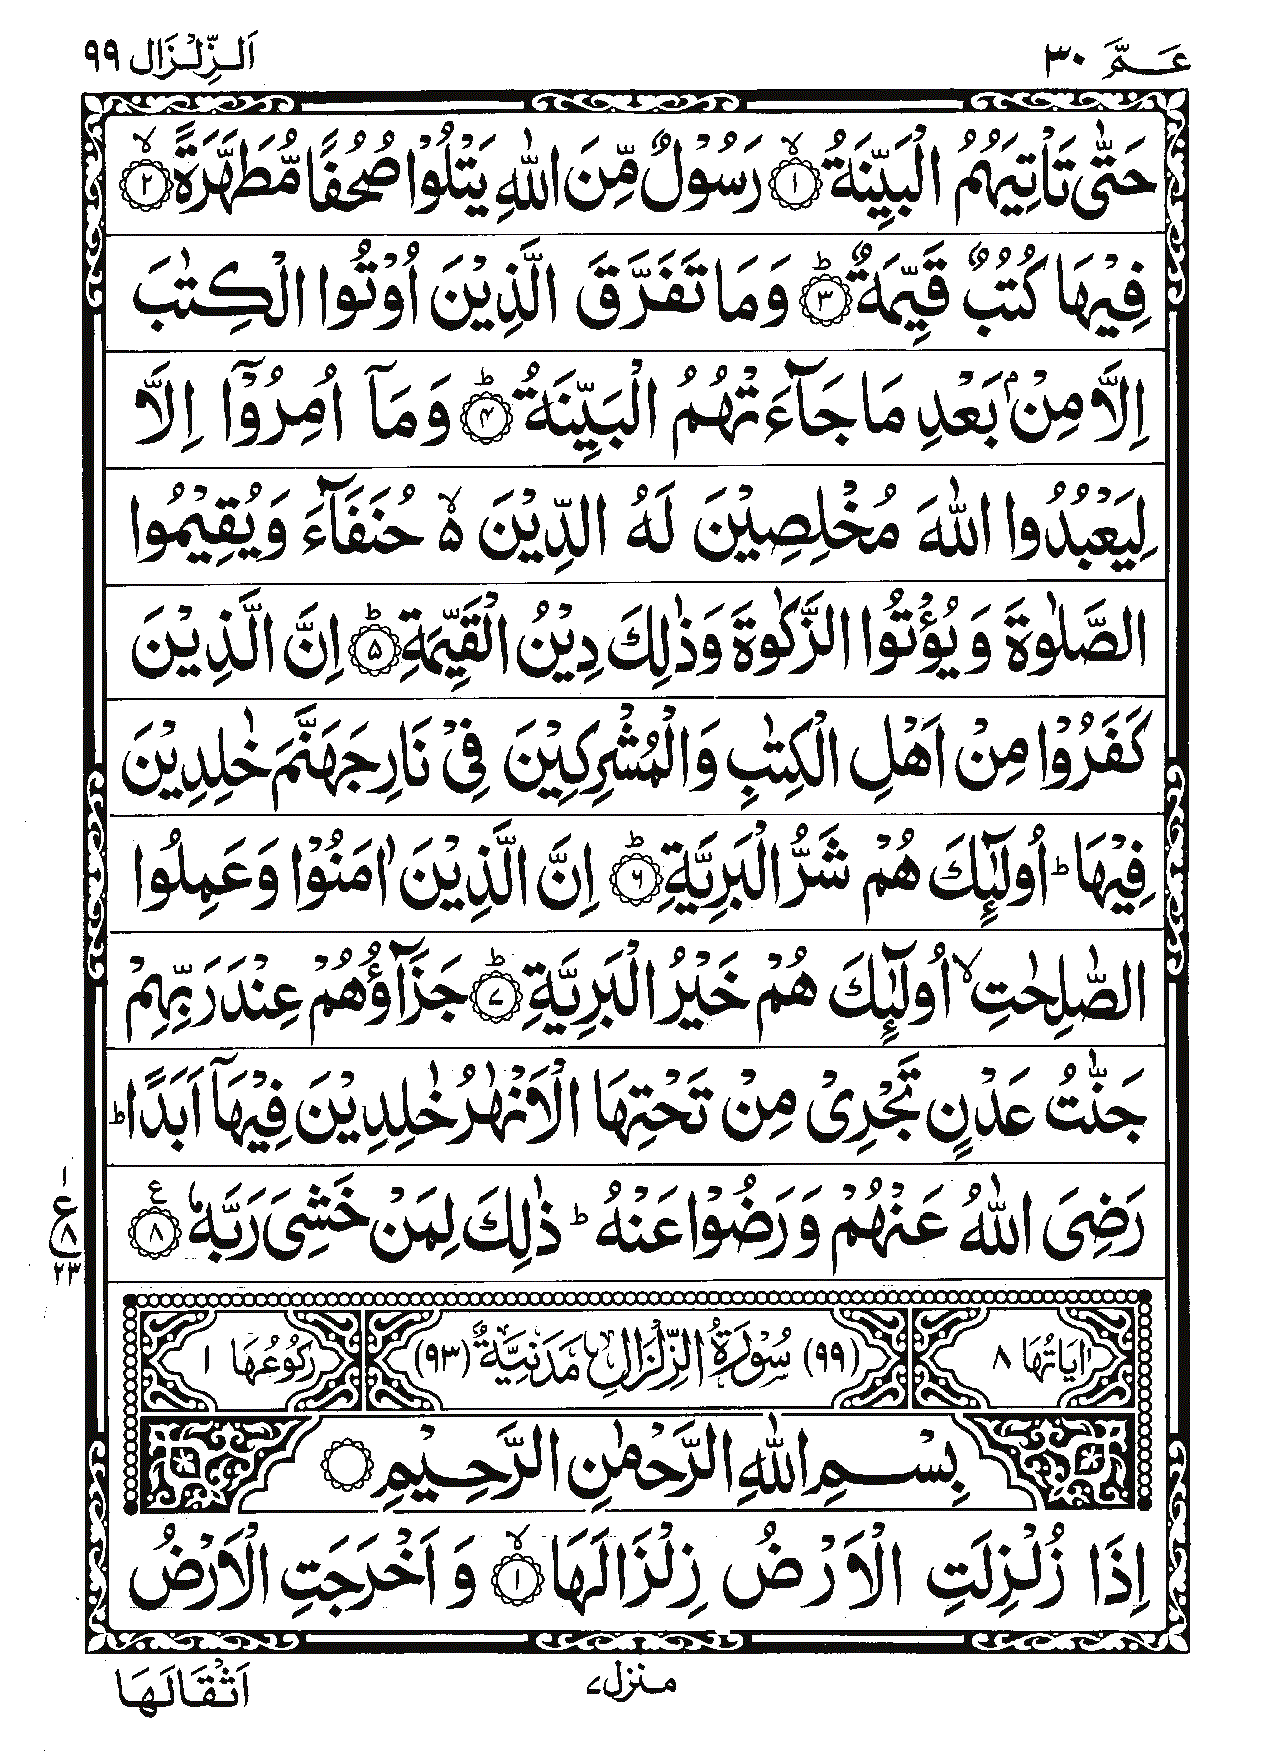 عَمَّ ٣٠
اَلزِّلْزَال ٩٩
حَتّٰى تَاْتِيَهُمُ الْبَيِّنَةُ ۙ‏﴿۱﴾ رَسُوْلٌ مِّنَ اللّٰهِ يَتْلُوْا صُحُفًا مُّطَهَّرَةً ۙ‏﴿۲﴾
فِيْهَا كُتُبٌ قَيِّمَةٌ ؕ‏﴿۳﴾ وَمَا تَفَرَّقَ الَّذِيْنَ اُوْتُوا الْكِتٰبَ
اِلَّا مِنْۢ بَعْدِ مَا جَآءَتْهُمُ الْبَيِّنَةُ ؕ‏﴿۴﴾ وَمَاۤ اُمِرُوْۤا اِلَّا
لِيَعْبُدُوا اللّٰهَ مُخْلِصِيْنَ لَهُ الدِّيْنَ ۙ۵ حُنَفَآءَ وَيُقِيْمُوا
الصَّلٰوةَ وَيُؤْتُوا الزَّكٰوةَ وَذٰلِكَ دِيْنُ الْقَيِّمَةِ ؕ‏﴿۵﴾ اِنَّ الَّذِيْنَ
كَفَرُوْا مِنْ اَهْلِ الْكِتٰبِ وَالْمُشْرِكِيْنَ فِيْ نَارِ جَهَنَّمَ خٰلِدِيْنَ
فِيْهَا ؕ اُولٰٓئِكَ هُمْ شَرُّ الْبَرِيَّةِ ؕ‏﴿۶﴾ اِنَّ الَّذِيْنَ اٰمَنُوْا وَعَمِلُوا
الصّٰلِحٰتِ ۙ اُولٰٓئِكَ هُمْ خَيْرُ الْبَرِيَّةِ ؕ‏﴿۷﴾ جَزَآؤُهُمْ عِنْدَ رَبِّهِمْ
جَنّٰتُ عَدْنٍ تَجْرِيْ مِنْ تَحْتِهَا الْاَنْهٰرُ خٰلِدِيْنَ فِيْهَاۤ اَبَدًا ؕ
رَضِيَ اللّٰهُ عَنْهُمْ وَرَضُوْا عَنْهُ ؕ ذٰلِكَ لِمَنْ خَشِيَ رَبَّهٗ ﴿۸﴾ ع
١ ع ٨ ٢٣
اٰيَاتُهَا ٨ (٩٩) سُوْرَةُ الزِّلْزَالِ مَدَنِيَّةٌ (٩٣) رُكُوْعُهَا ١
بِسْمِ اللّٰهِ الرَّحْمٰنِ الرَّحِيْمِ
اِذَا زُلْزِلَتِ الْاَرْضُ زِلْزَالَهَا ۙ‏﴿۱﴾ وَاَخْرَجَتِ الْاَرْضُ
منزل ۷
اَثْقَالَهَا